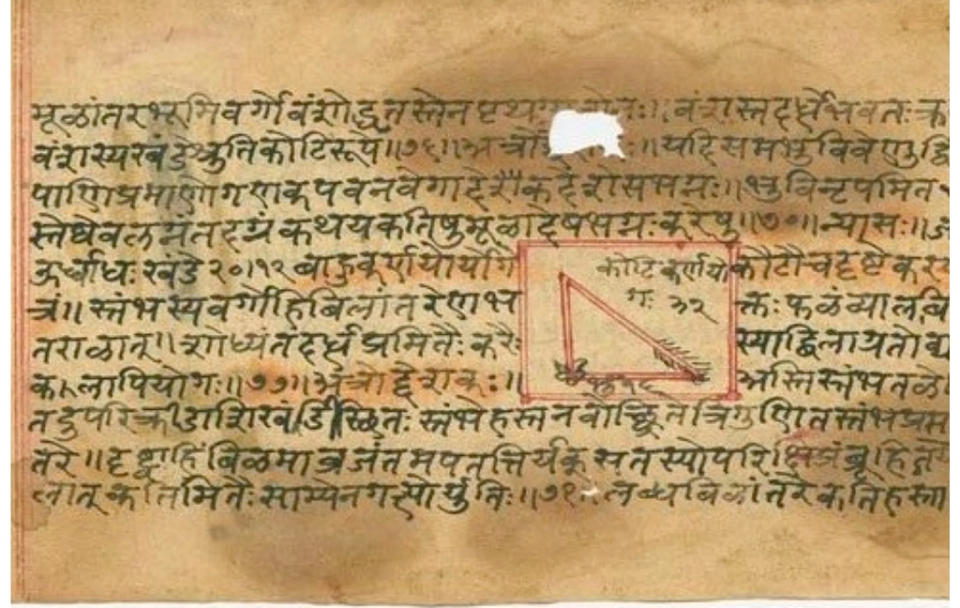 मूळांतरभूमिवर्गो वंशोद्धृतस्तेन पृथ वंशस्तदर्धे भवतः क्र
वंशस्य खंडे श्रुतिकोटिरूपे ॥७६॥ अत्रो ॥ यदि समभुवि वेणुर्द्वि
पाणिप्रमाणो गणक पवनवेगादेकदेशे स भग्नः ॥ भुवि नृपमित
स्तेष्वेव लग्नं तदग्रं कथय कतिषु मूळादेष भग्नः करेषु ॥७०॥ न्यासः ॥
ऊर्ध्वाधः खंडे २०।१२ बाहुकर्णयोर्योगे कोटिकर्णयो कोटौ च दृष्टे कर
गः ३२
त्रं ॥ स्तंभस्य वर्गोहि बिलांतरेण भ क्तः फळं व्यालबि
तराळात् ॥ शोध्यं तदर्धप्रमितैः करैः स्याद्बिलाग्रतो व्या
कलापियोगः ॥७७॥ अत्रोद्देशकः ॥ १६ अस्ति स्तंभतळे
तदुपरि क्रीडाशिखंडी स्थितः स्तंभे हस्तनवोच्छ्रिते त्रिगुणितस्तंभप्रमा
तरे ॥ दृष्ट्वाहिं बिळमाव्रजंतमपतत्तिर्यक् स तस्योपरि क्षिप्रं ब्रूहि तयो
लात् कतिमितैः साम्येन गत्योर्युतिः ॥७१ लब्ध बिळांतरे कति हस्ता